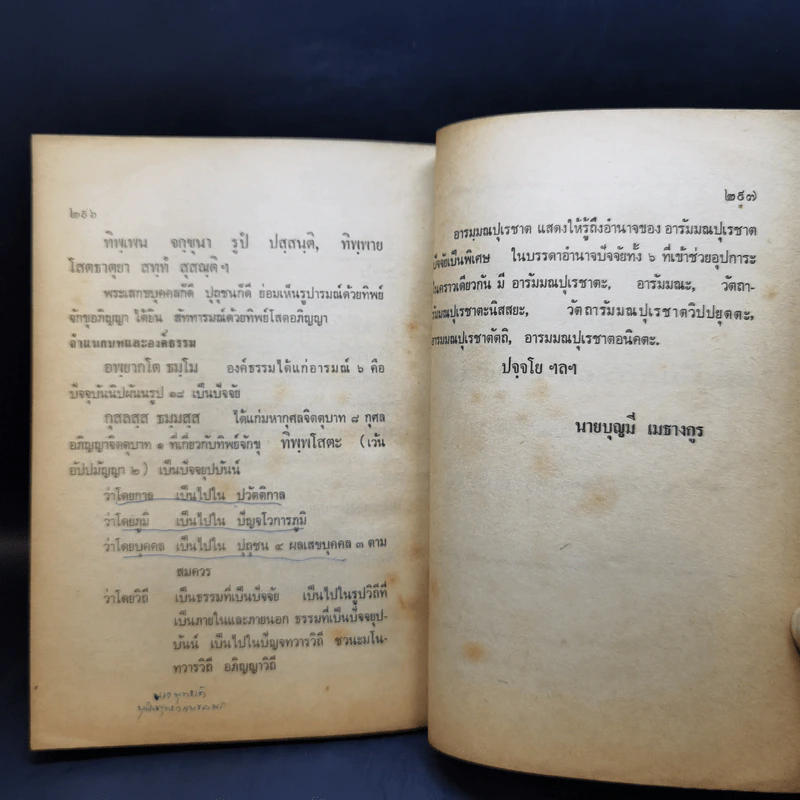 ๒๕๖
ทิพฺเพน จกฺขุนา รูปํ ปสฺสนฺติ, ทิพฺพาย
โสตธาตุยา สทฺทํ สุสฺณฺติฯ
พระเสกขบุคคลก็ดี ปุถุชนก็ดี ย่อมเห็นรูปารมณ์ด้วยทิพย์
จักขุอภิญญา ได้ยิน สัททารมณ์ด้วยทิพย์โสตอภิญญา
จำแนกบทและองค์ธรรม
อพฺยากโต ธมฺโม องค์ธรรมได้แก่อารมณ์ ๖ คือ
ปัจจุบันนิปผันนรูป ๑๘ เป็นปัจจัย
กุสลสฺส ธมฺมสฺส ได้แก่มหากุศลจิตตุบาท ๘ กุศล
อภิญญาจิตตุบาท ๑ ที่เกี่ยวกับทิพย์จักขุ ทิพฺพโสตะ (เว้น
อัปปมัญญา ๒) เป็นปัจจยุปบันน์
ว่าโดยกาล เป็นไปใน ปวัตติกาล
ว่าโดยภูมิ เป็นไปใน ปัญจโวการภูมิ
ว่าโดยบุคคล เป็นไปใน ปุถุชน ๔ ผลเสขบุคคล ๓ ตาม
สมควร
ว่าโดยวิถี เป็นธรรมที่เป็นปัจจัย เป็นไปในรูปวิถีที่
เป็นภายในและภายนอก ธรรมที่เป็นปัจจยุป-
บันน์ เป็นไปในปัญจทวารวิถี ชวนะมโน-
ทวารวิถี อภิญญาวิถี
๒๕๗
อารมฺมณปุเรชาต แสดงให้รู้ถึงอำนาจของ อารัมมณปุเรชาต
ปัจจัยเป็นพิเศษ ในบรรดาอำนาจปัจจัยทั้ง ๖ ที่เข้าช่วยอุปการะ
ในคราวเดียวกัน มี อารัมมณปุเรชาตะ, อารัมมณะ, วัตถา-
รัมมณปุเรชาตะนิสสยะ, วัตถารัมมณปุเรชาตวิปปยุตตะ,
อารมมณปุเรชาตัตถิ, อารัมมณปุเรชาตอวิคตะ.
ปจฺจโย ฯลฯ
นายบุญมี เมธางกูร